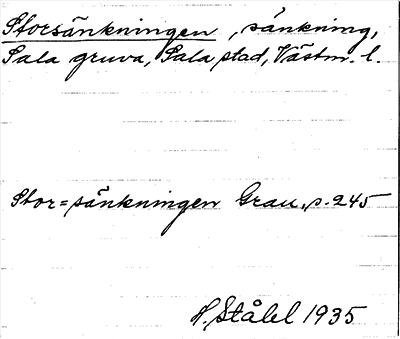 Storsänkningen, sänkning,
Sala gruva, Sala stad, Västm. l.
Stor=sänkningen Grau, s. 245
H. Ståhl 1935